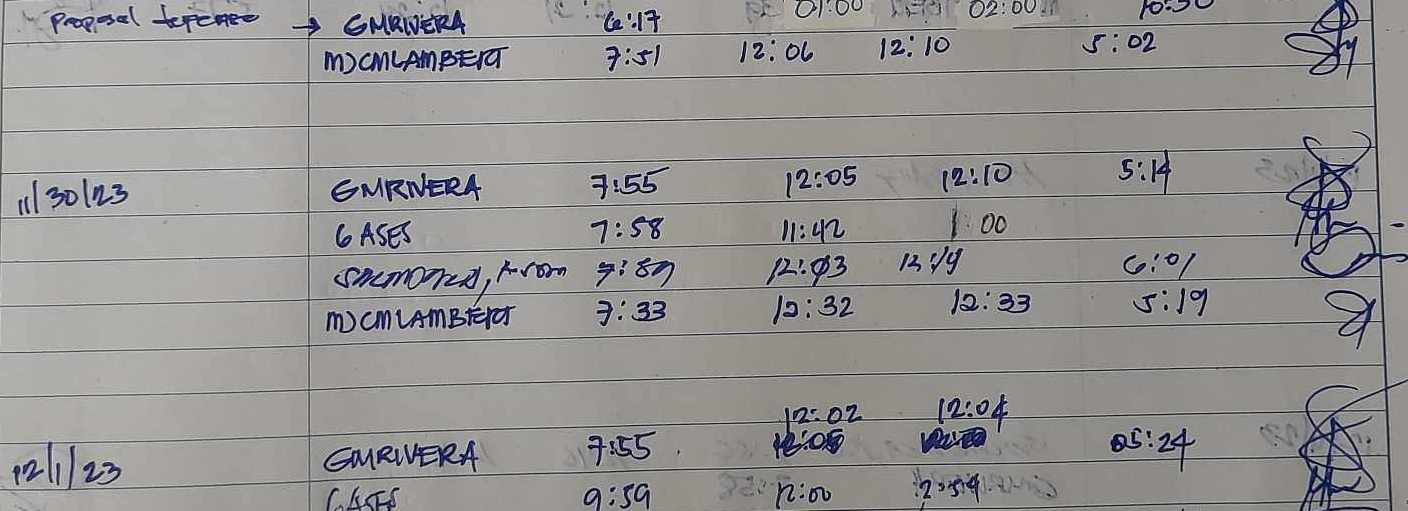 Proposal → GMRIVERA 6:17 01:00 02:00 10:30
MJCMLAMBERT 7:51 12:06 12:10 5:02
11/30/23 GMRIVERA 7:55 12:05 12:10 5:14
GASES 7:58 11:42 1:00
12:03 6:01
MJCMLAMBERT 7:33 12:32 12:33 5:19
12:02 12:04
12/1/23 GMRIVERA 7:55 05:24
GASES 9:59 12:00